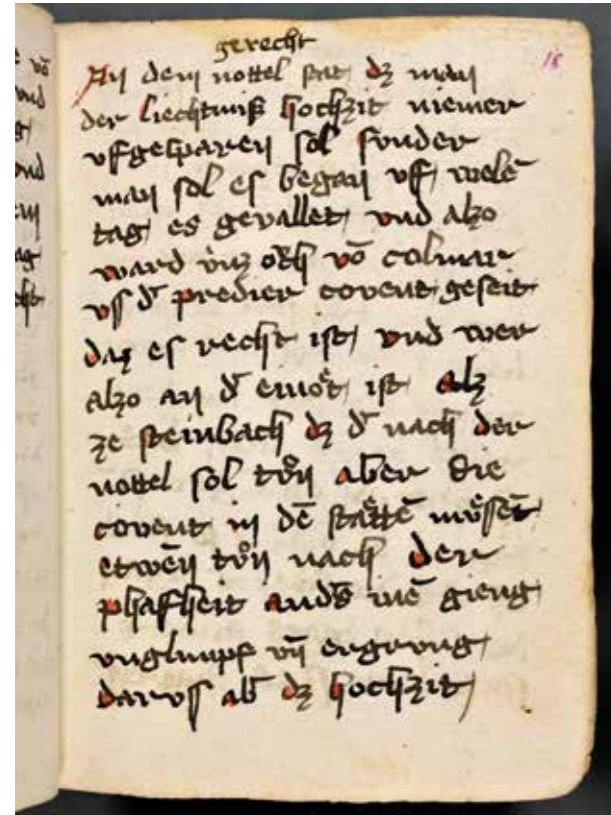 gerecht
18
An dem nottel stat dz man
der liechtmiß hochzit niemer
vfgesparen sol sunder
man sol es began vf welē
tag es gevallet vnd alzo
ward vnz och vō colmar
vss d' predier covent geseit
daz es recht ist vnd wer
alzo an d' einöt ist alz
ze steinbach dz d' nach der
nottel sol tůn aber die
covent in dē stättē můssēt
etwēn tůn nach der
phafheit anders mē gieng
vnglimpf vn̄ ergrvng
darvss ab' dz hochzit